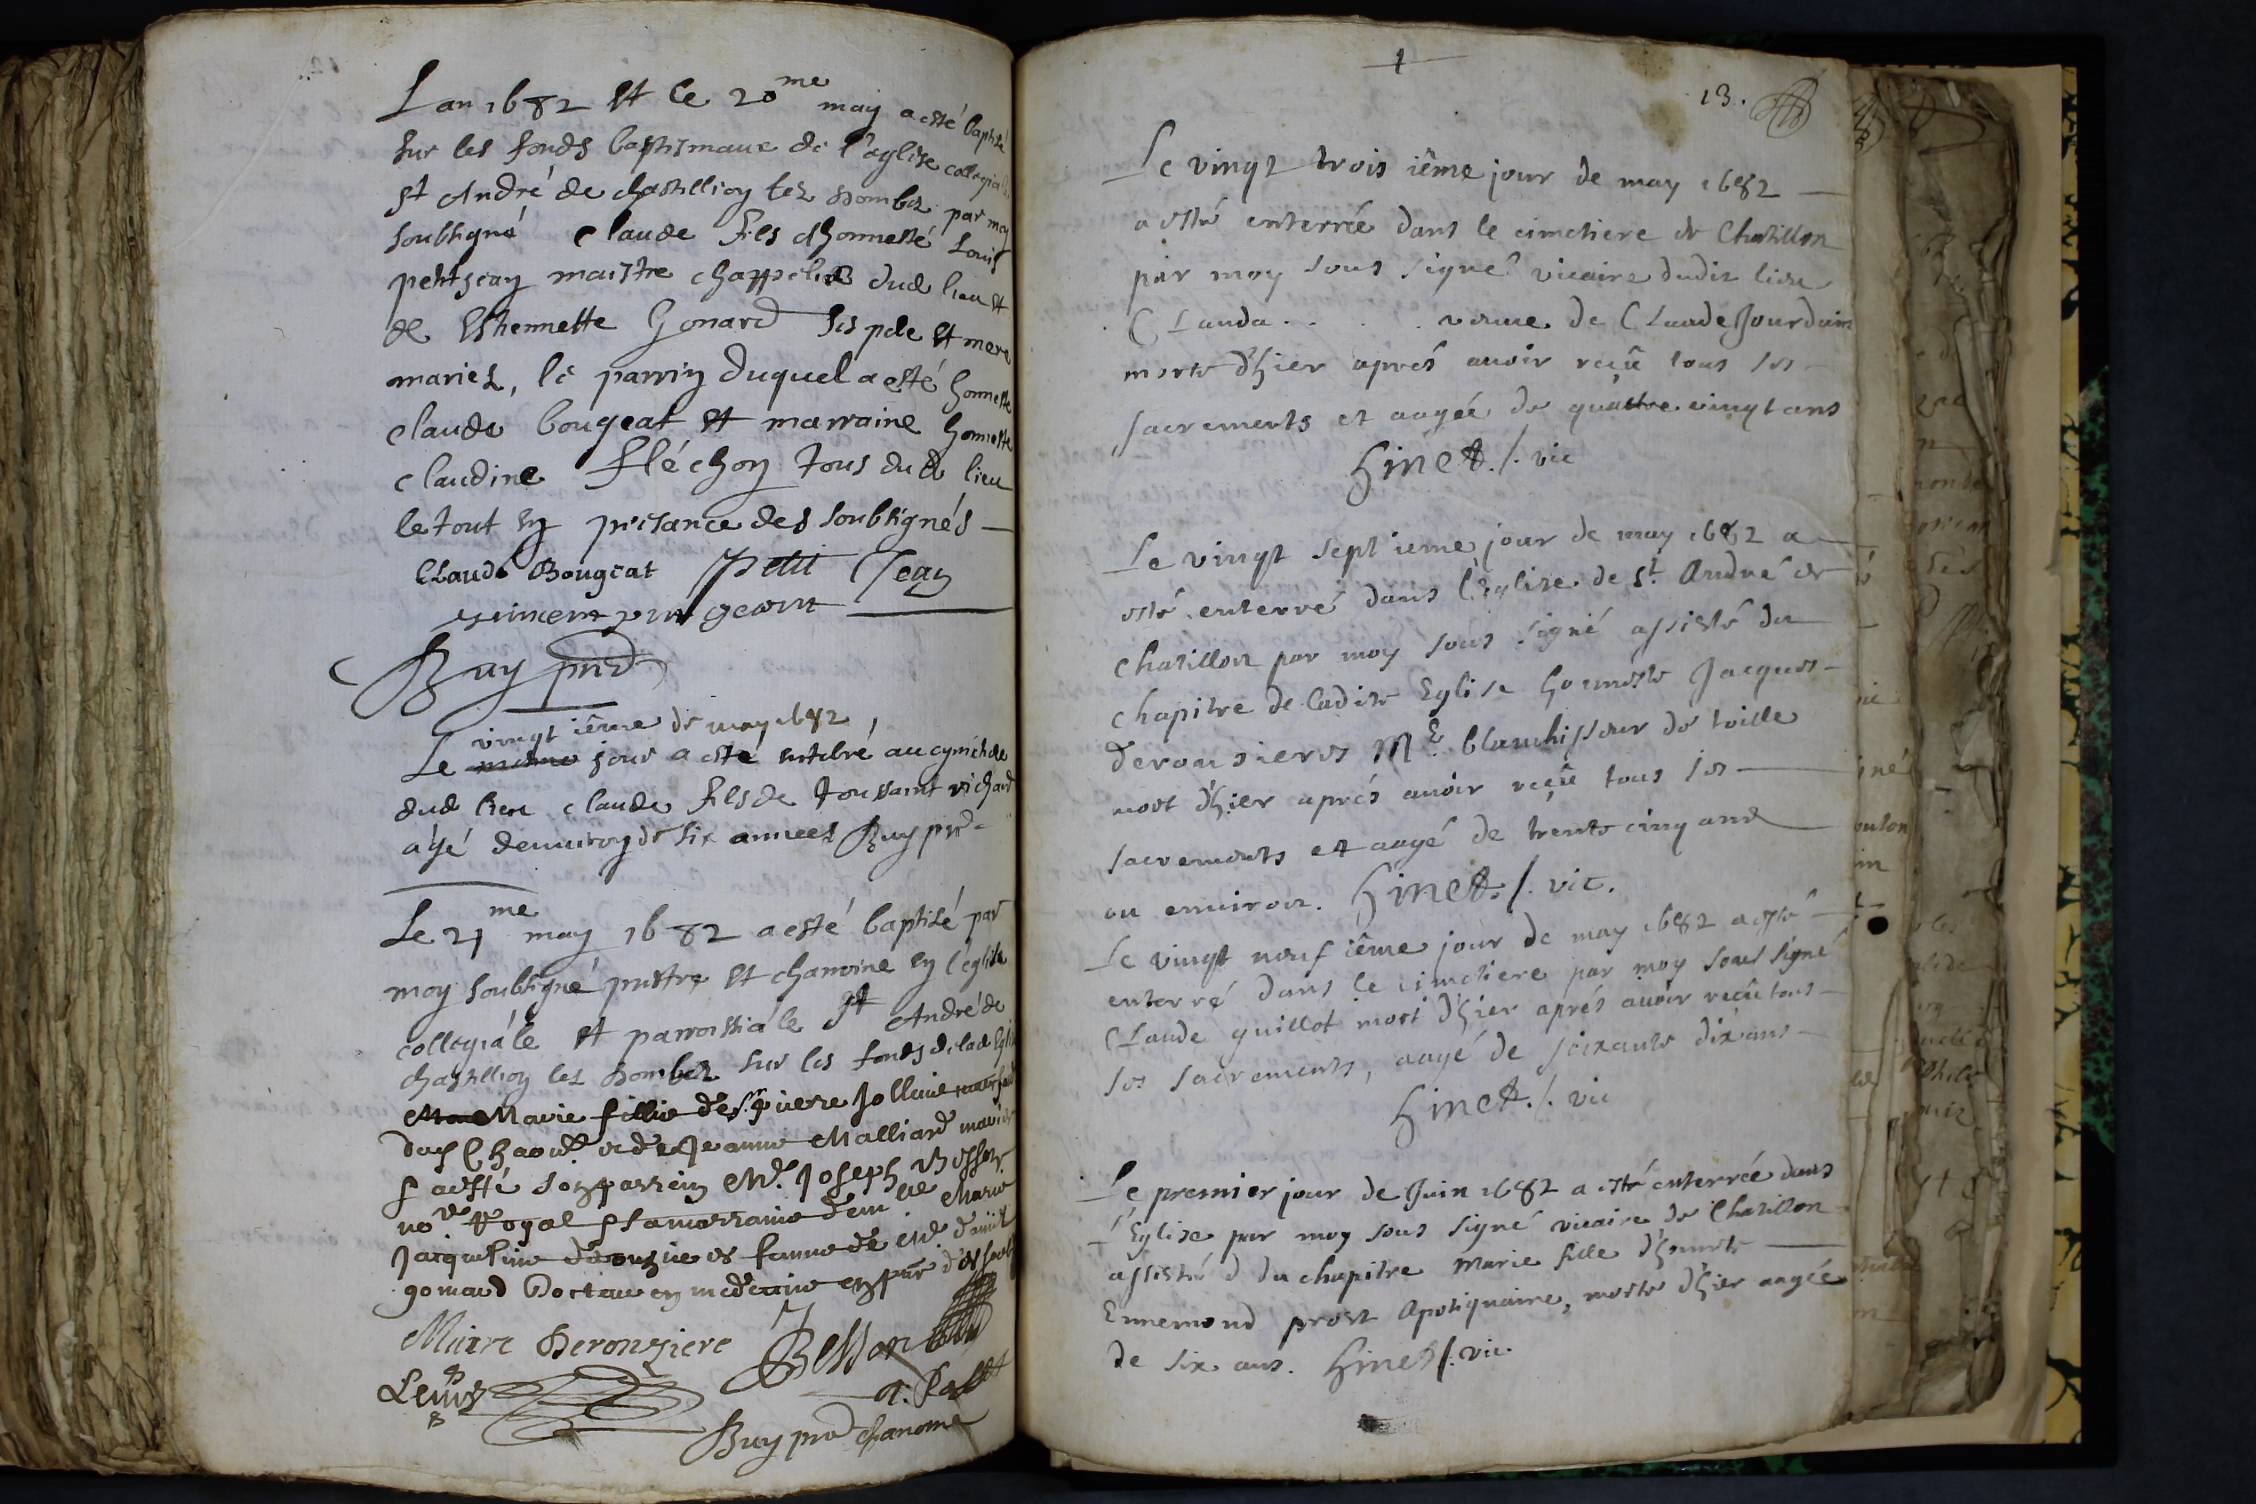 Lan 1682 et le 20me may a esté baptisé
sur les fonds baptismaux de l'eglise collegiale
st André de chastillion les dombes par moy
soubsigné claude fils dhonnesté Louis
petitjean maistre chappelier dud lieu et
de Esthennette Gonard ses pere et mere
mariés, le parrin duquel a esté honneste
claude bougeat et marraine honneste
claudine fléchon tous dud lieu
le tout en presance des soubsignés
Claude Bougeat Petit Jean
Buy pre
vingt ième de may 1682
Le mesme jour a esté enterré au cymitiere
dud lieu claude fils de toussaint richard
agé denviron de six annees Buy pre
Le 21me may 1682 a esté baptisé par
moy soubsigné prestre et chanoine en l'eglise
collegiále et parroissiále st André de
chastillion les dombes sur les fonds de lad Eglise
Marie fillie de Sr pierre Jollivie
de Jeanne Malliard mariés
a esté son parrein Mr. Joseph Besson
nore Royal sa marraine dem lle Marie
Jacqueline deronzieres famme de Mr
gonard Docteur en medecine
Marie Deronziere Besson
Buy pre chanoine
13.
Le vingt trois ième jour de may 1682
a esté enterrée dans le cimetiere de Chatillon
par moy sous signé vicaire dudit lieu
Clauda . . . . veuve de Claude Jourdain
morte d'hier aprés avoir reçû tous ses
sacrements et aagée de quattre vingt ans
Ginet ./. vic
Le vingt sept ieme jour de may 1682 a
esté enterré dans l'Eglise de St. André de
chatillon par moy sous signé assisté du
chapitre de ladite Eglise honneste Jacques
deronzieres Me. blanchisseur de toille
mort d'hier aprés avoir reçû tous ses
sacrements et aagé de trente cinq ans
ou environ. Ginet ./. vic.
Le vingt neuf ième jour de may 1682 a esté
enterré dans le cimetiere par moy sous signé
Claude guillot mort d'hier aprés avoir reçû tous
ses sacrements, aagé de soixante dix ans
Ginet ./. vic
Le premier jour de Juin 1682 a esté enterrée dans
l'Eglise par moy sous signé vicaire de Chatillon
assisté d du chapitre Marie fille d'honneste
Ennemond prost Apotiquaire, morte d'hier aagée
de six ans. Ginet ./. vic.